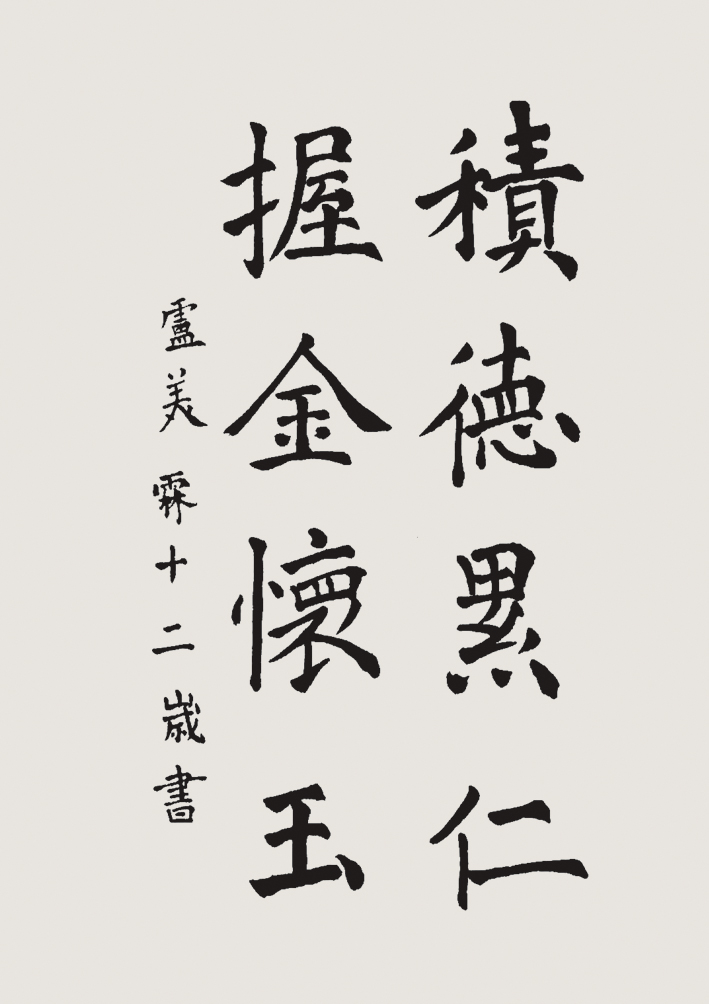 積德累仁
握金懷玉
盧美霖十二歲書